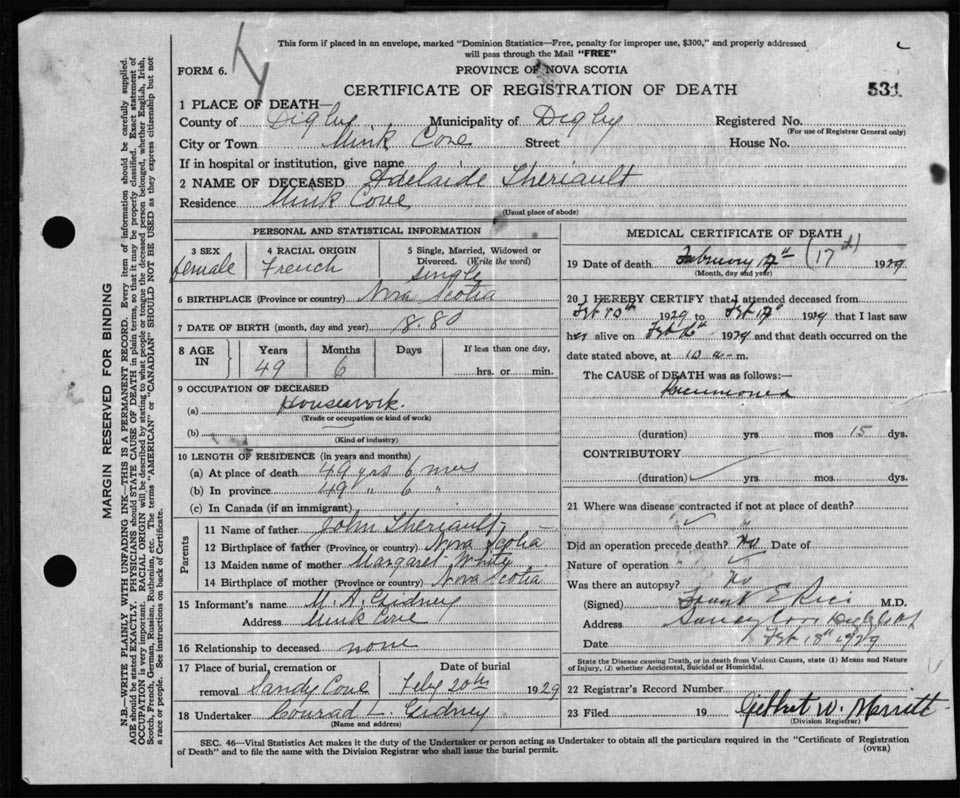 This form if placed in an envelope, marked "Dominion Statistics—Free, penalty for improper use, $300," and properly addressed
will pass through the Mail "FREE"
FORM 6.
PROVINCE OF NOVA SCOTIA
CERTIFICATE OF REGISTRATION OF DEATH
531
1 PLACE OF DEATH—
County of Digby Municipality of Digby Registered No.
(For use of Registrar General only)
City or Town Mink Cove Street House No.
If in hospital or institution, give name
2 NAME OF DECEASED Adelaide Theriault
Residence Mink Cove
(Usual place of abode)
PERSONAL AND STATISTICAL INFORMATION
3 SEX female
4 RACIAL ORIGIN French
5 Single, Married, Widowed or
Divorced. (Write the word)
Single
6 BIRTHPLACE (Province or country) Nova Scotia
7 DATE OF BIRTH (month, day and year) 1880
8 AGE IN Years Months Days If less than one day,
49 6 hrs. or min.
9 OCCUPATION OF DECEASED
(a) Housework.
(Trade or occupation or kind of work)
(b)
(Kind of industry)
10 LENGTH OF RESIDENCE (in years and months)
(a) At place of death 49 yrs 6 mos
(b) In province 49 " 6 "
(c) In Canada (if an immigrant)
Parents
11 Name of father John Theriault
12 Birthplace of father (Province or country) Nova Scotia
13 Maiden name of mother Margaret White
14 Birthplace of mother (Province or country) Nova Scotia
15 Informant's name M. A. Gidney
Address Mink Cove
16 Relationship to deceased none
17 Place of burial, cremation or Date of burial
removal Sandy Cove Feby 20th 1929
18 Undertaker Conrad L. Gidney
(Name and address)
MEDICAL CERTIFICATE OF DEATH
19 Date of death February 17th (17th) 1929
(Month, day and year)
20 I HEREBY CERTIFY that I attended deceased from
Feb 1929 to Feb 17 1929 that I last saw
her alive on Feb 1929 and that death occurred on the
date stated above, at 10 a m.
The CAUSE of DEATH was as follows:—
Pneumonia
(duration) yrs mos 15 dys.
CONTRIBUTORY
(duration) yrs mos dys.
21 Where was disease contracted if not at place of death?
Did an operation precede death? No Date of
Nature of operation
Was there an autopsy? No
(Signed) Frank E Rice M.D.
Address Sandy Cove Digby
Date Feb 18th 1929
State the Disease causing Death, or in death from Violent Causes, state (1) Means and Nature
of Injury, (2) whether Accidental, Suicidal or Homicidal.
22 Registrar's Record Number
23 Filed 19 Gilbert W. Merritt
(Division Registrar)
SEC. 46—Vital Statistics Act makes it the duty of the Undertaker or person acting as Undertaker to obtain all the particulars required in the "Certificate of Registration
of Death" and to file the same with the Division Registrar who shall issue the burial permit.
(OVER)
MARGIN RESERVED FOR BINDING
N.B.—WRITE PLAINLY WITH UNFADING INK—THIS IS A PERMANENT RECORD. Every item of information should be carefully supplied.
AGE should be stated EXACTLY. PHYSICIANS should STATE CAUSE OF DEATH in plain terms, so that it may be properly classified. Exact statement of
OCCUPATION is very important. RACIAL ORIGIN will be described by stating to what people or tongue the deceased person belonged, whether English, Irish,
Scotch, French, German, Russian, Ruthenian, etc. The terms "AMERICAN" or "CANADIAN" SHOULD NOT BE USED as they express citizenship but not
a race or people. See instructions on back of Certificate.